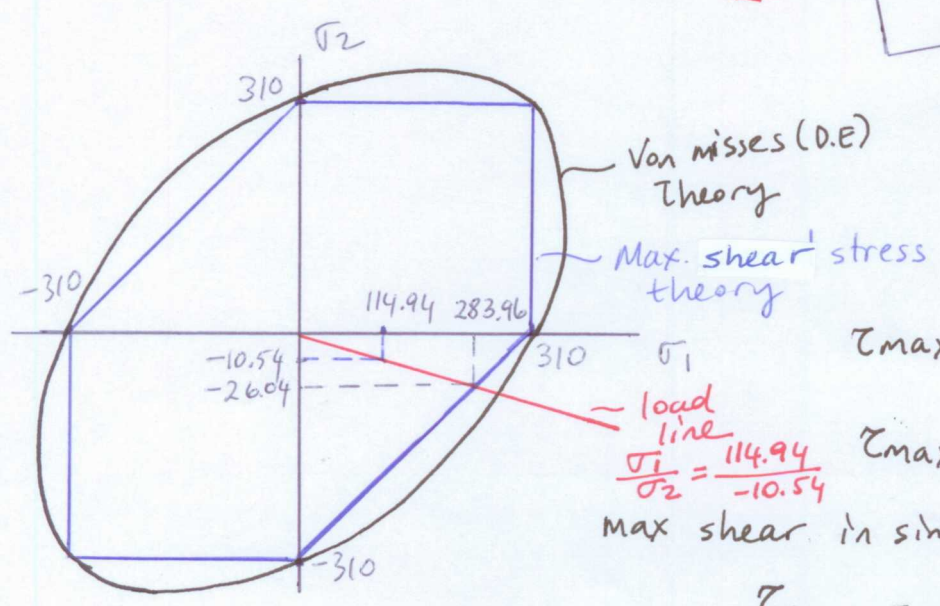 σ2
310
Von misses (D.E)
Theory
Max. shear stress
theory
-310
114.94
283.96
310
σ1
-10.54
-26.04
load
line
σ1/σ2 = 114.94/-10.54
τmax
τmax
max shear in sin
-310
τ